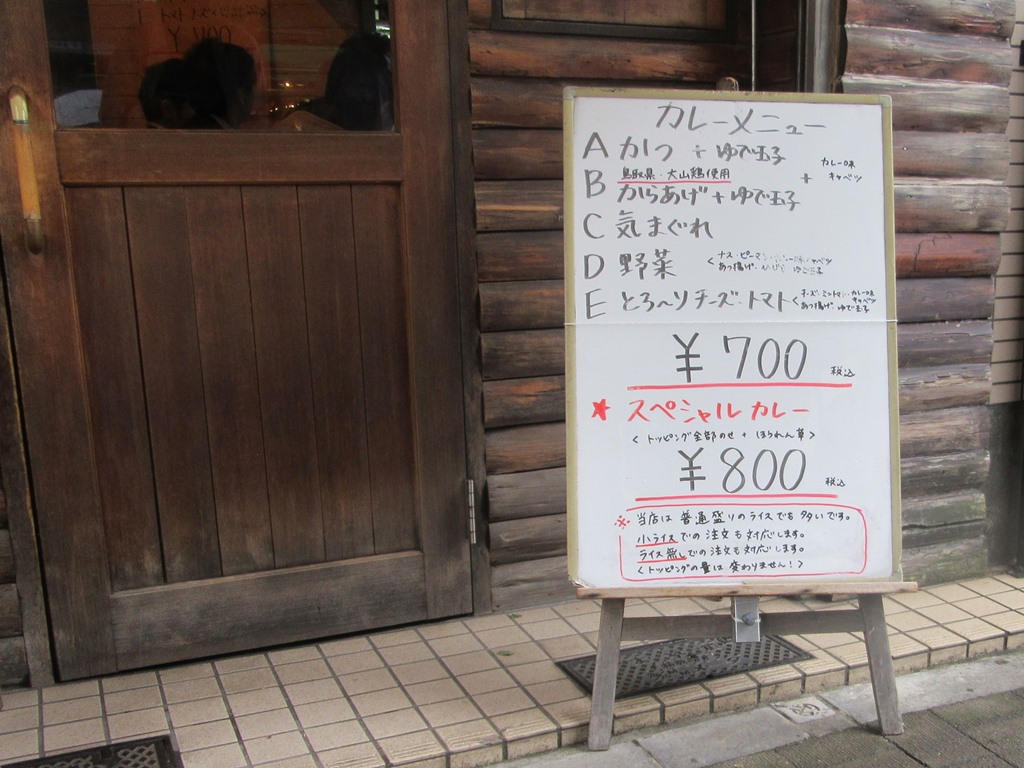 カレーメニュー
A かつ + ゆで玉子
鳥取県・大山鶏使用
B からあげ + ゆで玉子
+ カレー味
キャベツ
C 気まぐれ
D 野菜 < ナス・ピーマン キャベツ
あつ揚げ・ ゆで玉子
E とろ～りチーズ・トマト < チーズ・ミットマト・カレー味
キャベツ
あつ揚げ ゆで玉子
￥700 税込
★ スペシャルカレー
< トッピング全部のせ + ほうれん草 >
￥800 税込
※ 当店は普通盛りのライスでも多いです。
小ライスでの注文も対応します。
ライス無しでの注文も対応します。
< トッピングの量は変わりません! >